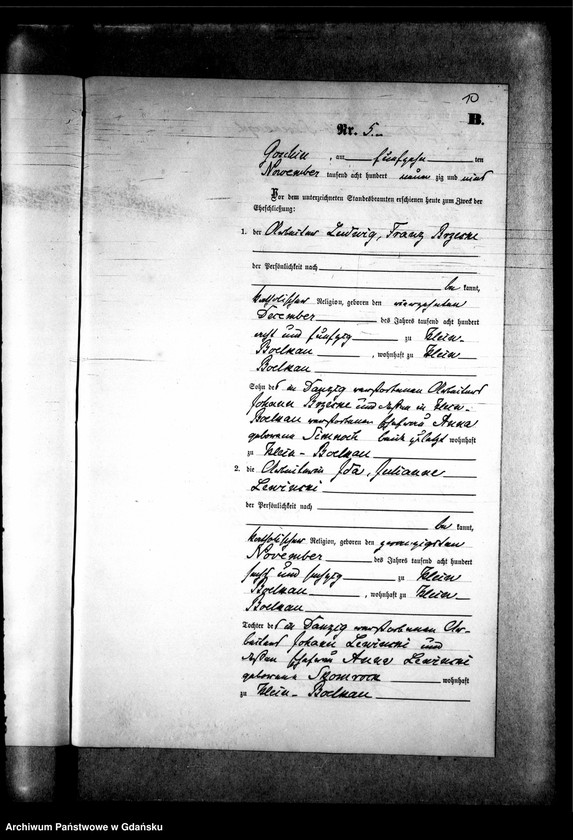 10
B.
Nr. 5.
Goschin, am fünfzehn ten
November tausend acht hundert neun zig und
Vor dem unterzeichneten Standesbeamten erschienen heute zum Zweck der
Eheschließung:
1. der Arbeiter Ludwig, Franz Brzeske
der Persönlichkeit nach
be kannt,
katholischer Religion, geboren den vierzehnten
December des Jahres tausend acht hundert
acht und fünfzig zu Klein-
Boelkau, wohnhaft zu Klein
Boelkau
Sohn des in Danzig verstorbenen Arbeiters
Johann Brzeske und dessen in Klein-
Boelkau verstorbenen Ehefrau Anna
geborene Simnoch beide zuletzt wohnhaft
zu Klein-Boelkau
2. die Arbeiterin Ida, Julianne
Lewinski
der Persönlichkeit nach
be kannt,
katholischer Religion, geboren den zwanzigsten
November des Jahres tausend acht hundert
sechs und sechzig zu Klein
Boelkau, wohnhaft zu Klein
Boelkau
Tochter des in Danzig verstorbenen Ar-
beiters Johann Lewinski und
dessen Ehefrau Anna Lewinski
geborene wohnhaft
zu Klein-Boelkau
Archiwum Państwowe w Gdańsku